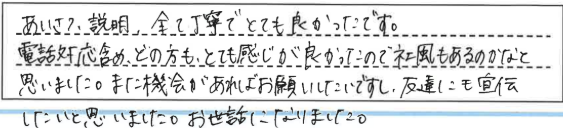 あいさつ、説明、全て丁寧でとても良かったです。
電話対応含め、どの方も、とても感じが良かったので社風もあるのかなと
思いました。また機会があればお願いしたいですし、友達にも宣伝
したいと思いました。お世話になりました。